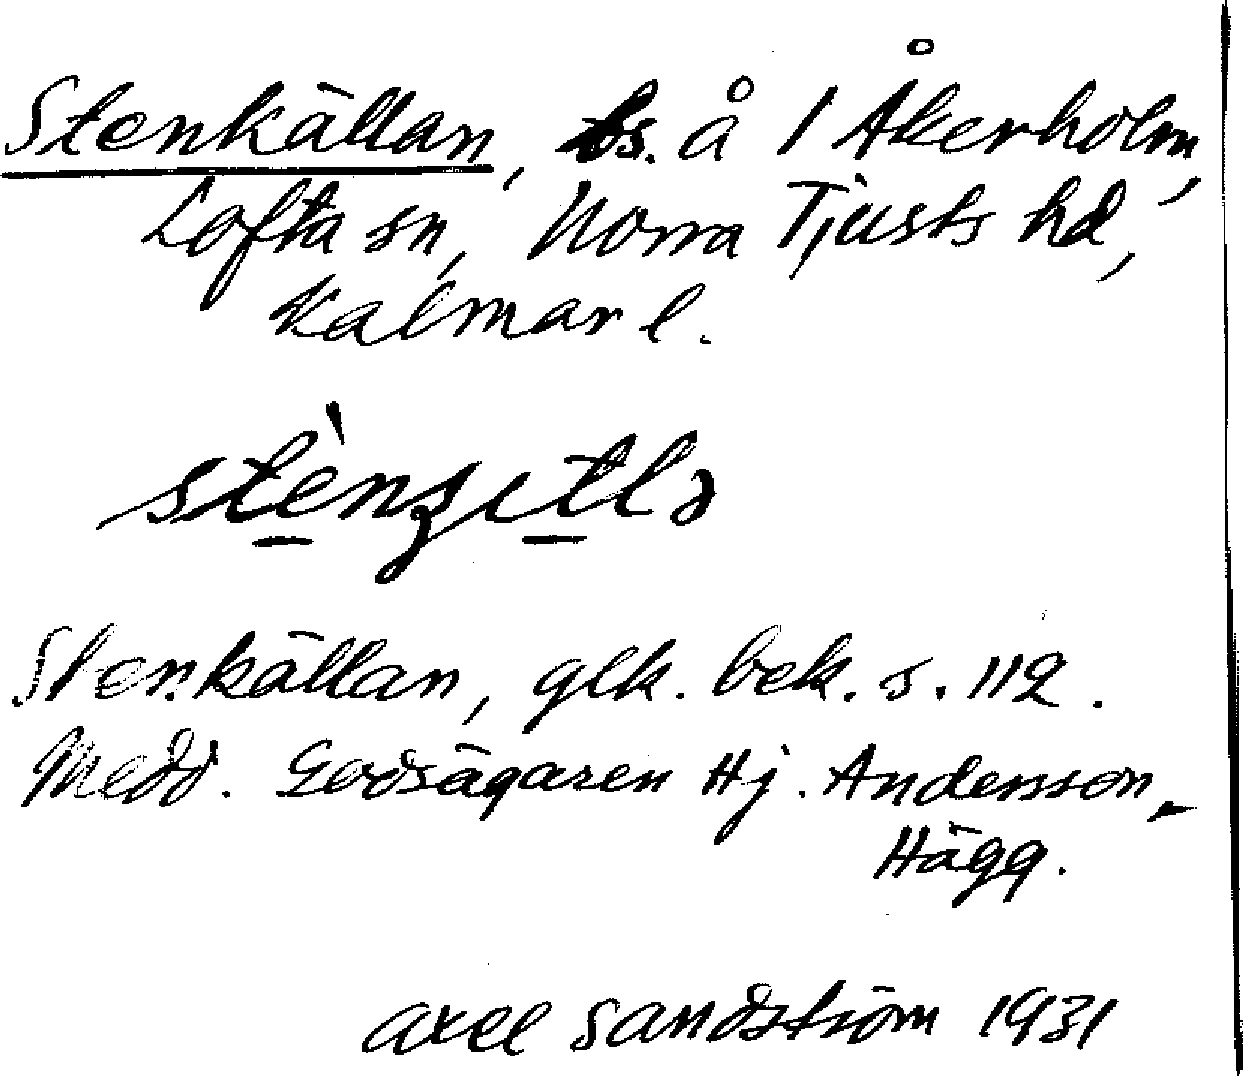 Stenkällan, ts. å 1 Åkerholm,
Lofta sn, Norra Tjusts hd,
Kalmar l.
Stenkällan, glk. bek. s. 112.
Medd. Godsägaren Hj. Andersson-
Hägg.
Axel Sandström 1931